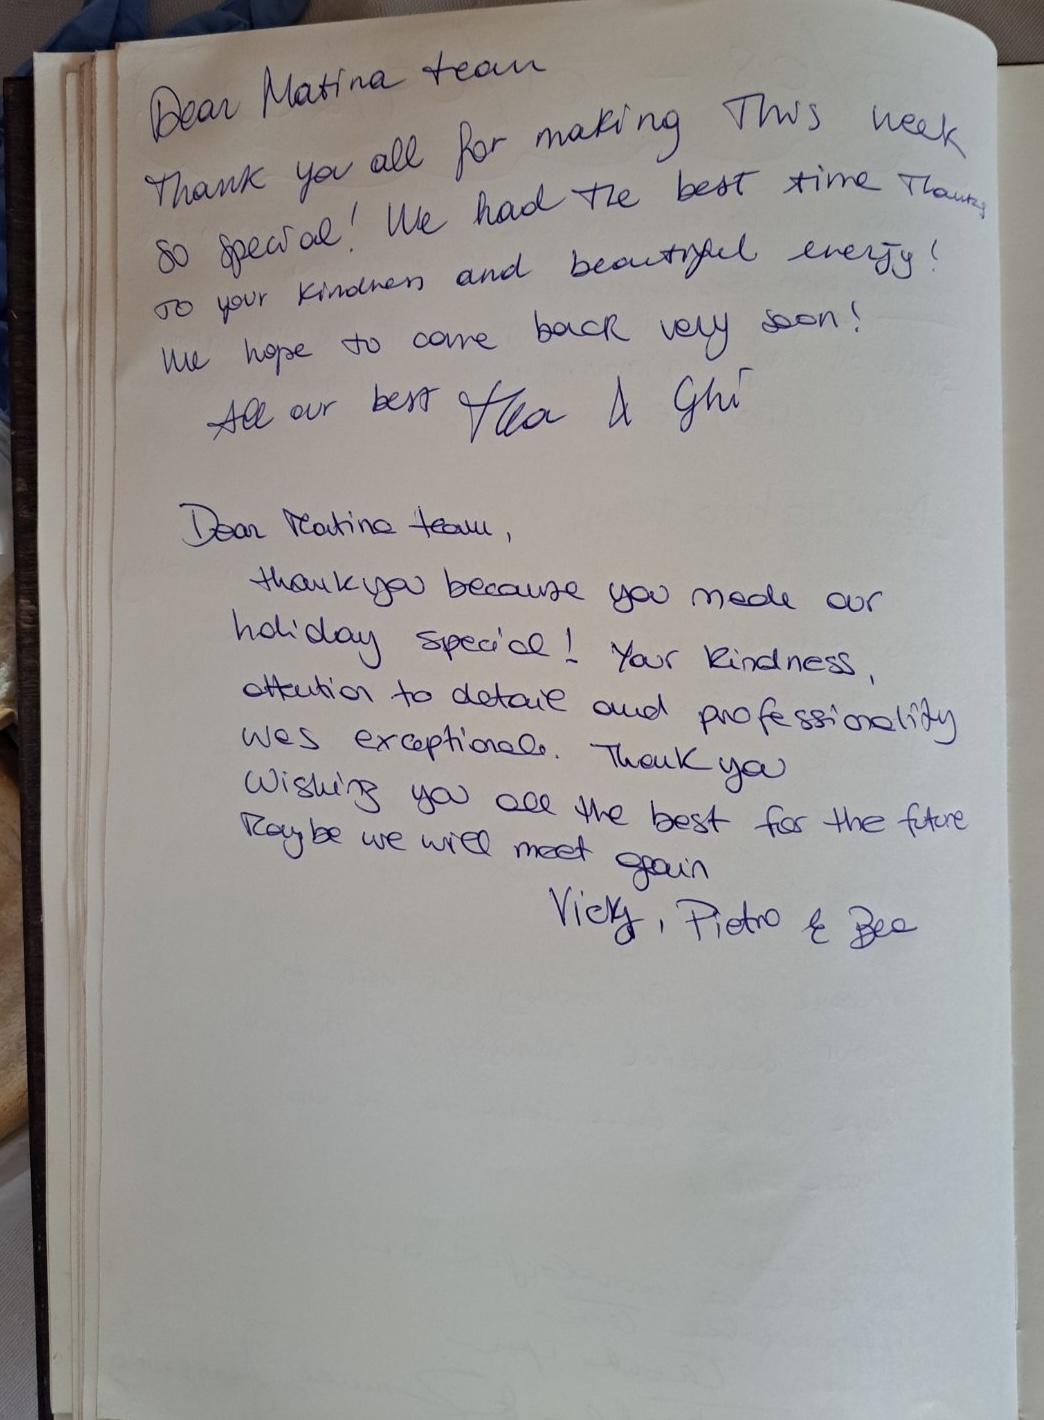 Dear Matina team
Thank you all for making This week
so special! We had the best time Thanks
to your kindness and beautiful energy!
We hope to come back very soon!
All our best & Ghi
Dear Matina team,
thank you because you made our
holiday special! Your kindness,
attention to detail and professionality
was exceptional. Thank you
Wishing you all the best for the future
Maybe we will meet again
Vicky, Pietro & Bea